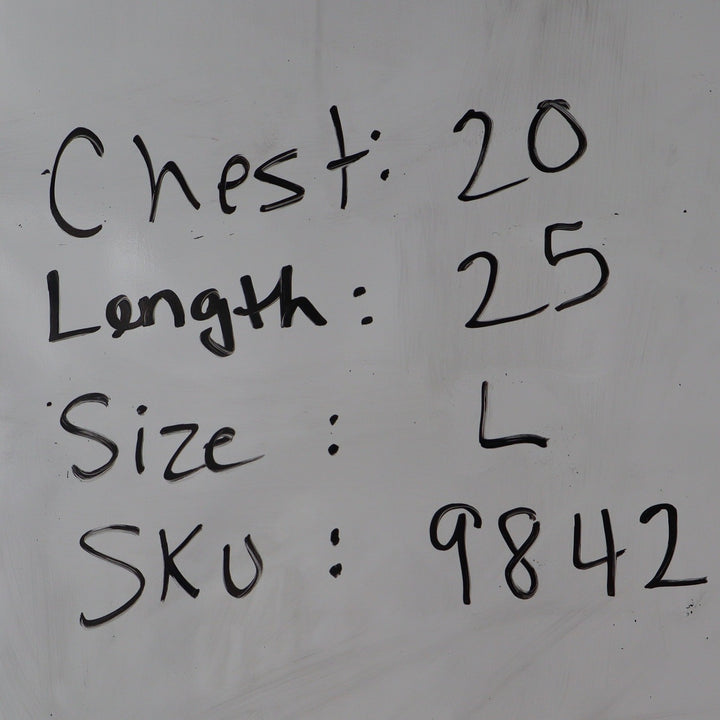 Chest: 20
Length: 25
Size: L
SKU: 9842